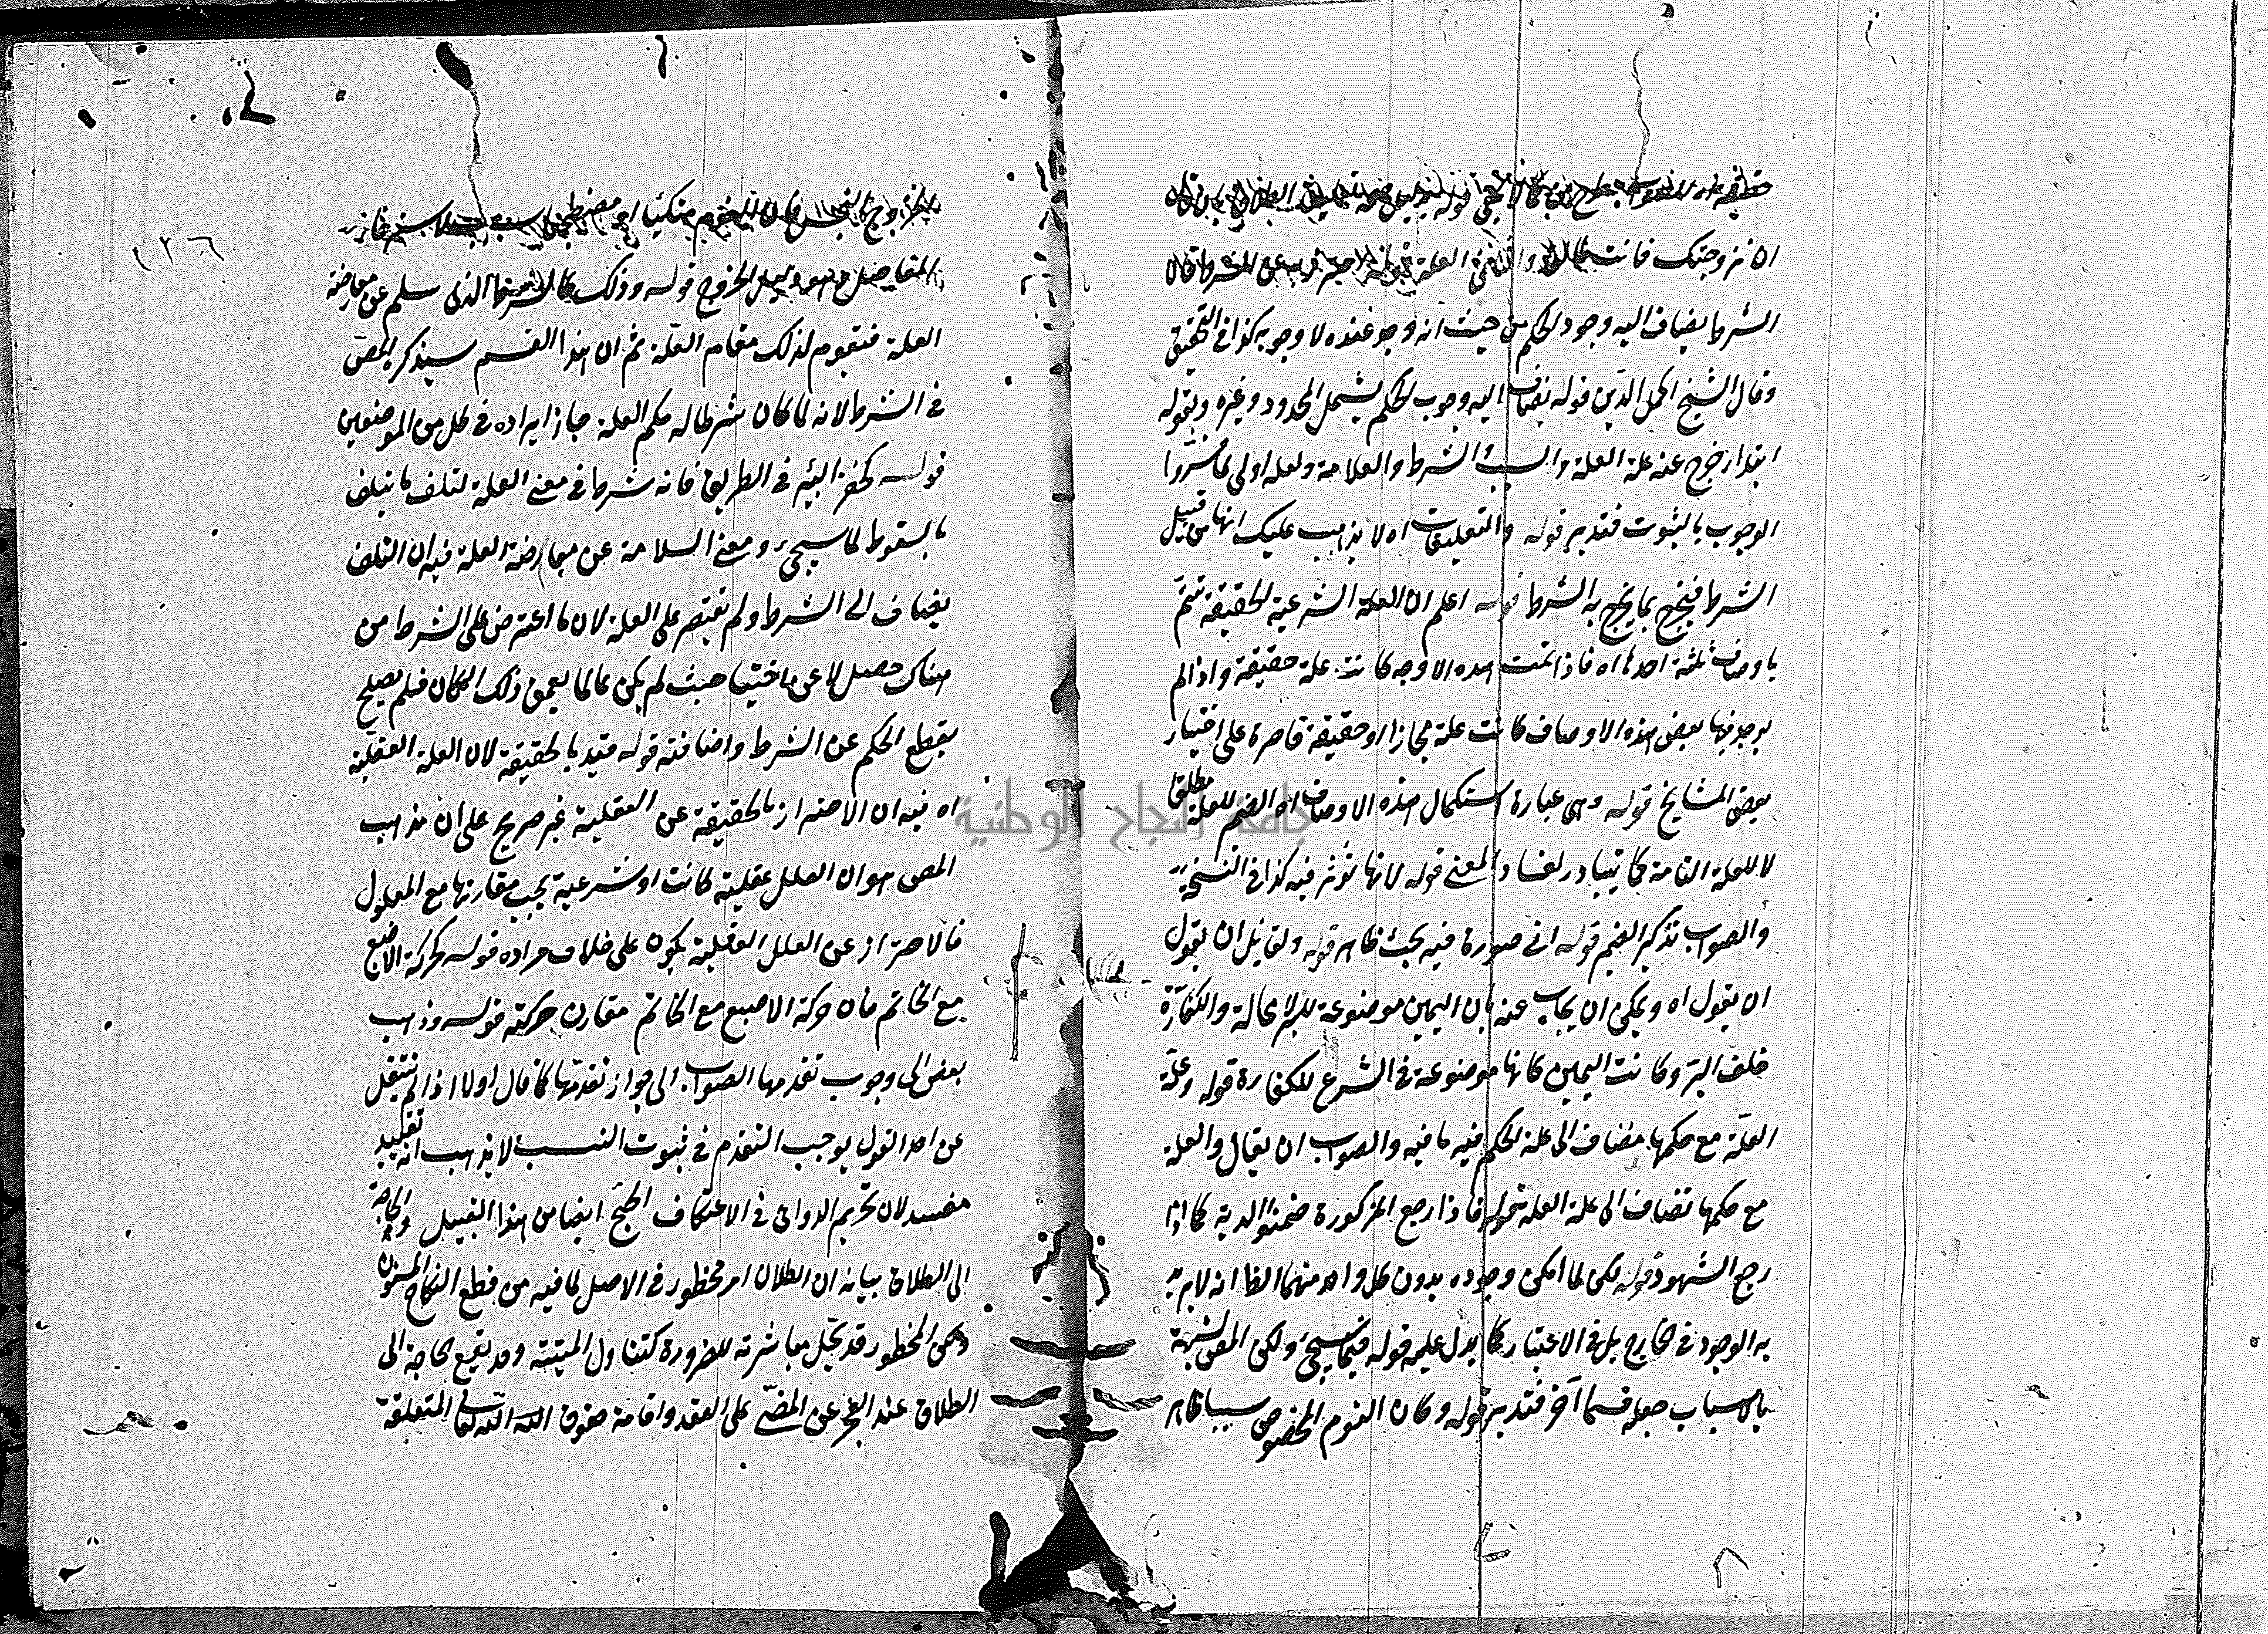 ان تزوجتك فانت طالق العلة عن الشرط قال
الشرط يضاف اليه وجود الحكم من حيث انه وجد عنده لا وجوبه كذا في التحقيق
وقال الشيخ اكمل الدين قوله يضاف اليه وجوب الحكم يشمل المحدود وغيره وبقوله
ابتداء خرج عنه علة العلة والسبب والشرط والعلامة ولعله اولى مما فسروا
الوجوب بالثبوت فتدبر قوله والتعليقات اه لا يذهب عليك انها من قبيل
الشرط فيخرج بما يخرج به الشرط قوله اعلم ان العلة الشرعية الحقيقية تتم
باوصاف ثلثة احدها اه فاذا تمت هذه الاوجه كانت علة حقيقية واذا لم
يوجد فيها بعض هذه الاوصاف كانت علة مجازا او حقيقة قاصرة على اختيار
بعض المشايخ قوله وهي عبارة استكمال هذه الاوصاف اه الضمير للعلة مطلقا
لا للعلة التامة كما يتبادر لفساد المعنى قوله لانها تؤثر فيه كذا في النسخ
والصواب تذكير الضمير قوله اي صورة فيه بحث ظاهر قوله ولقائل ان يقول
ان يقول اه ويمكن ان يجاب عنه بان اليمين موضوعة للبر لا محالة والكفارة
خلف البر وكانت اليمين كانها موضوعة في الشرع للكفارة قوله وعلة
العلة مع حكمها مضاف الى علة الحكم فيه ما فيه والصواب ان يقال والعلة
مع حكمها تضاف الى علة العلة قوله فاذا رجع المزكورة ضمنوا الدية كما اذا
رجع الشهود قوله لكن لما امكن وجوده بدون كل واحد منهما الظ انه لا يريد
به الوجود في الخارج بل في الاعتبار كما يدل عليه قوله فيما سيجئ ولكن المص لشبهة
بالاسباب جعله قسما آخر فتدبر قوله وكان النوم المخصوص سببا قام
المفاصل دليل الخروج قوله وذلك كالشرط الذي سلم عن معارضة
العلة فتقوم لذلك مقام العلة ثم ان هذا القسم سيذكره المص
في الشرط لانه لما كان شرطا له حكم العلة جاز ايراده في كل من الموضعين
قوله كحفر البئر في الطريق فانه شرط في معنى العلة لتلف ما يتلف
بالسقوط كما سيجئ ومعنى السلامة عن معارضة العلة فيه ان التلف
يضاف الى الشرط ولم يقتصر على العلة لان ما اعترض على الشرط من
هناك حصل لا عن اختيار حيث لم يكن عالما بعمق ذلك المكان فلم يصلح
بقطع الحكم عن الشرط واضافته قوله قيد بالحقيقة لان العلة العقلية
اه فيه ان الاحتراز بالحقيقة عن العقلية غير صريح على ان مذهب
المص هو ان العلل عقلية كانت او شرعية يجب مقارنها مع المعلول
فالاحتراز عن العلل العقلية يكون على خلاف مراده قوله كحركة الاصبع
مع الخاتم فان حركة الاصبع مع الخاتم مقارن حركته قوله وذهب
بعض الى وجوب تقدمها الصواب الى جواز تقدمها كما قال اولا اذا لم تنتقل
عن احد القول يوجب التقدم في ثبوت النسب لا يذهب انه تقييد
مفسد لان تحريم الدواعي في الاعتكاف الحج ايضا من هذا القبيل والحاجة
الى الطلاق بيانه ان الطلاق امر محظور في الاصل لما فيه من قطع النكاح المسنون
لكن المحظور قد يحل مباشرته للضرورة كتناول الميتة وقد يقع الحاجة الى
الطلاق عند العجز عن المضي على العقد واقامة حقوق الله تعالى المتعلقة
١٣٦
جامعة النجاح الوطنية